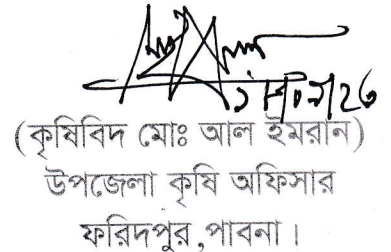 (কৃষিবিদ মোঃ আল ইমরান)
উপজেলা কৃষি অফিসার
ফরিদপুর,পাবনা।